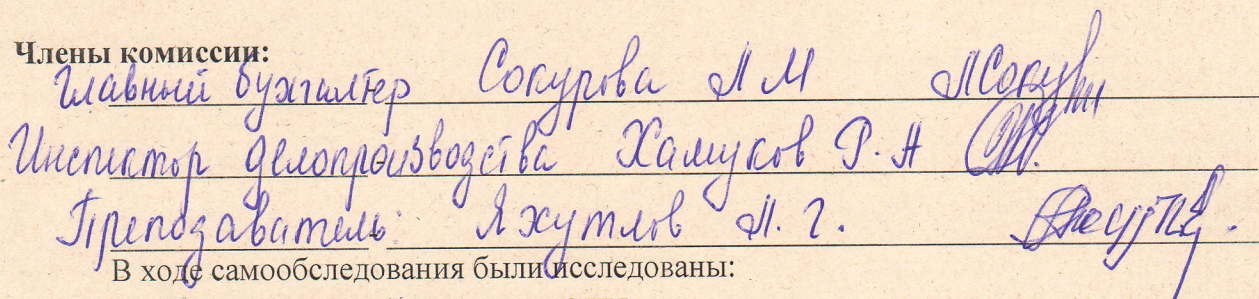 Члены комиссии:
Главный бухгалтер Сокурова Л М
Инспектор делопроизводства Хамуков Р. А
Преподаватель: Яхутлов М. Г.
В ходе самообследования были исследованы: